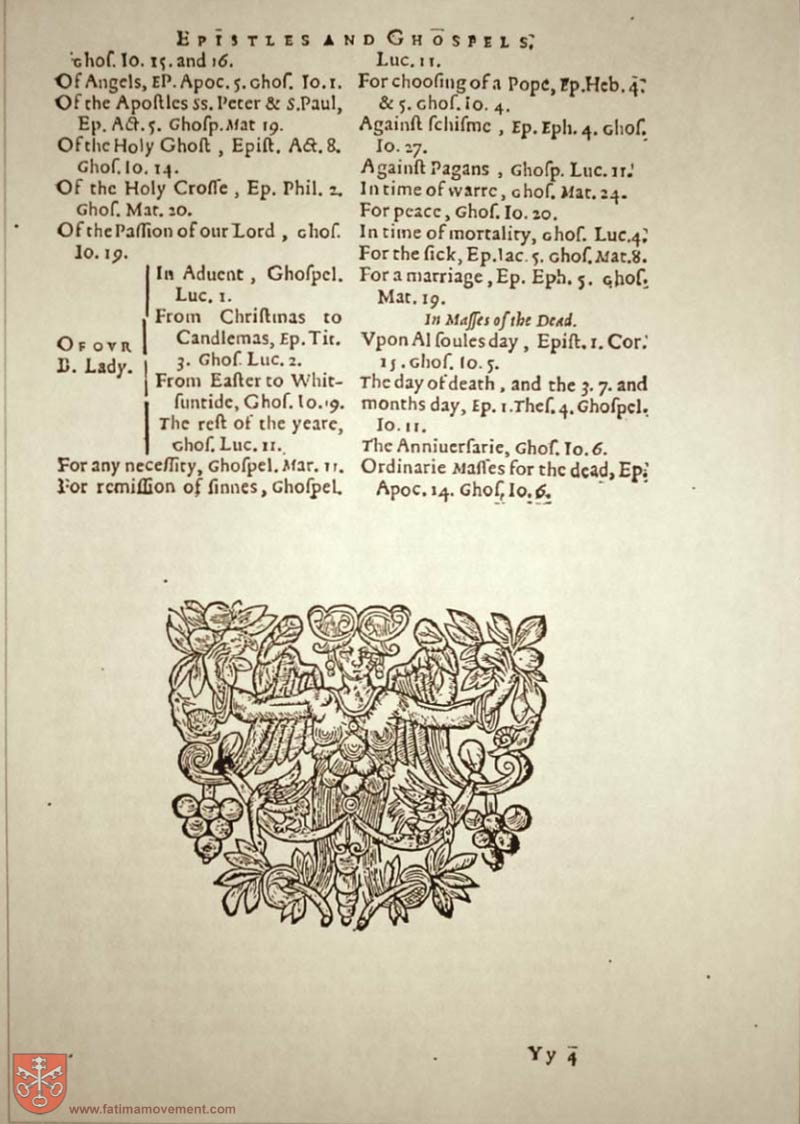 EPISTLES AND GHOSPELS.
Ghoſ. Io. 15. and 16.
Of Angels, EP. Apoc. 5. Ghoſ. Io. 1.
Of the Apoſtles SS. Peter & S. Paul,
Ep. Act. 5. Ghoſp. Mat 19.
Of the Holy Ghoſt, Epiſt. Act. 8.
Ghoſ. Io. 14.
Of the Holy Croſſe, Ep. Phil. 2.
Ghoſ. Mat. 20.
Of the Paſſion of our Lord, Ghoſ.
Io. 19.
OF OVR
B. Lady.
In Aduent, Ghoſpel.
Luc. 1.
From Chriſtmas to
Candlemas, Ep. Tit.
3. Ghoſ. Luc. 2.
From Eaſter to Whit-
ſuntide, Ghoſ. Io. 19.
The reſt of the yeare,
Ghoſ. Luc. 11.
For any neceſſity, Ghoſpel. Mar. 11.
For remiſſion of ſinnes, Ghoſpel.
Luc. 11.
For chooſing of a Pope, Ep. Heb. 4.
& 5. Ghoſ. Io. 4.
Againſt ſchiſme, Ep. Eph. 4. Ghoſ.
Io. 27.
Againſt Pagans, Ghoſp. Luc. 11.
In time of warre, Ghoſ. Mat. 24.
For peace, Ghoſ. Io. 20.
In time of mortality, Ghoſ. Luc. 4.
For the ſick, Ep. Iac. 5. Ghoſ. Mat. 8.
For a marriage, Ep. Eph. 5. Ghoſ.
Mat. 19.
In Maſſes of the Dead.
Vpon Al ſoules day, Epiſt. 1. Cor.
15. Ghoſ. Io. 5.
The day of death, and the 3. 7. and
months day, Ep. 1. Theſ. 4. Ghoſpel.
Io. 11.
The Anniuerſarie, Ghoſ. Io. 6.
Ordinarie Maſſes for the dead, Ep.
Apoc. 14. Ghoſ. Io. 6.
Yy 4
www.fatimamovement.com